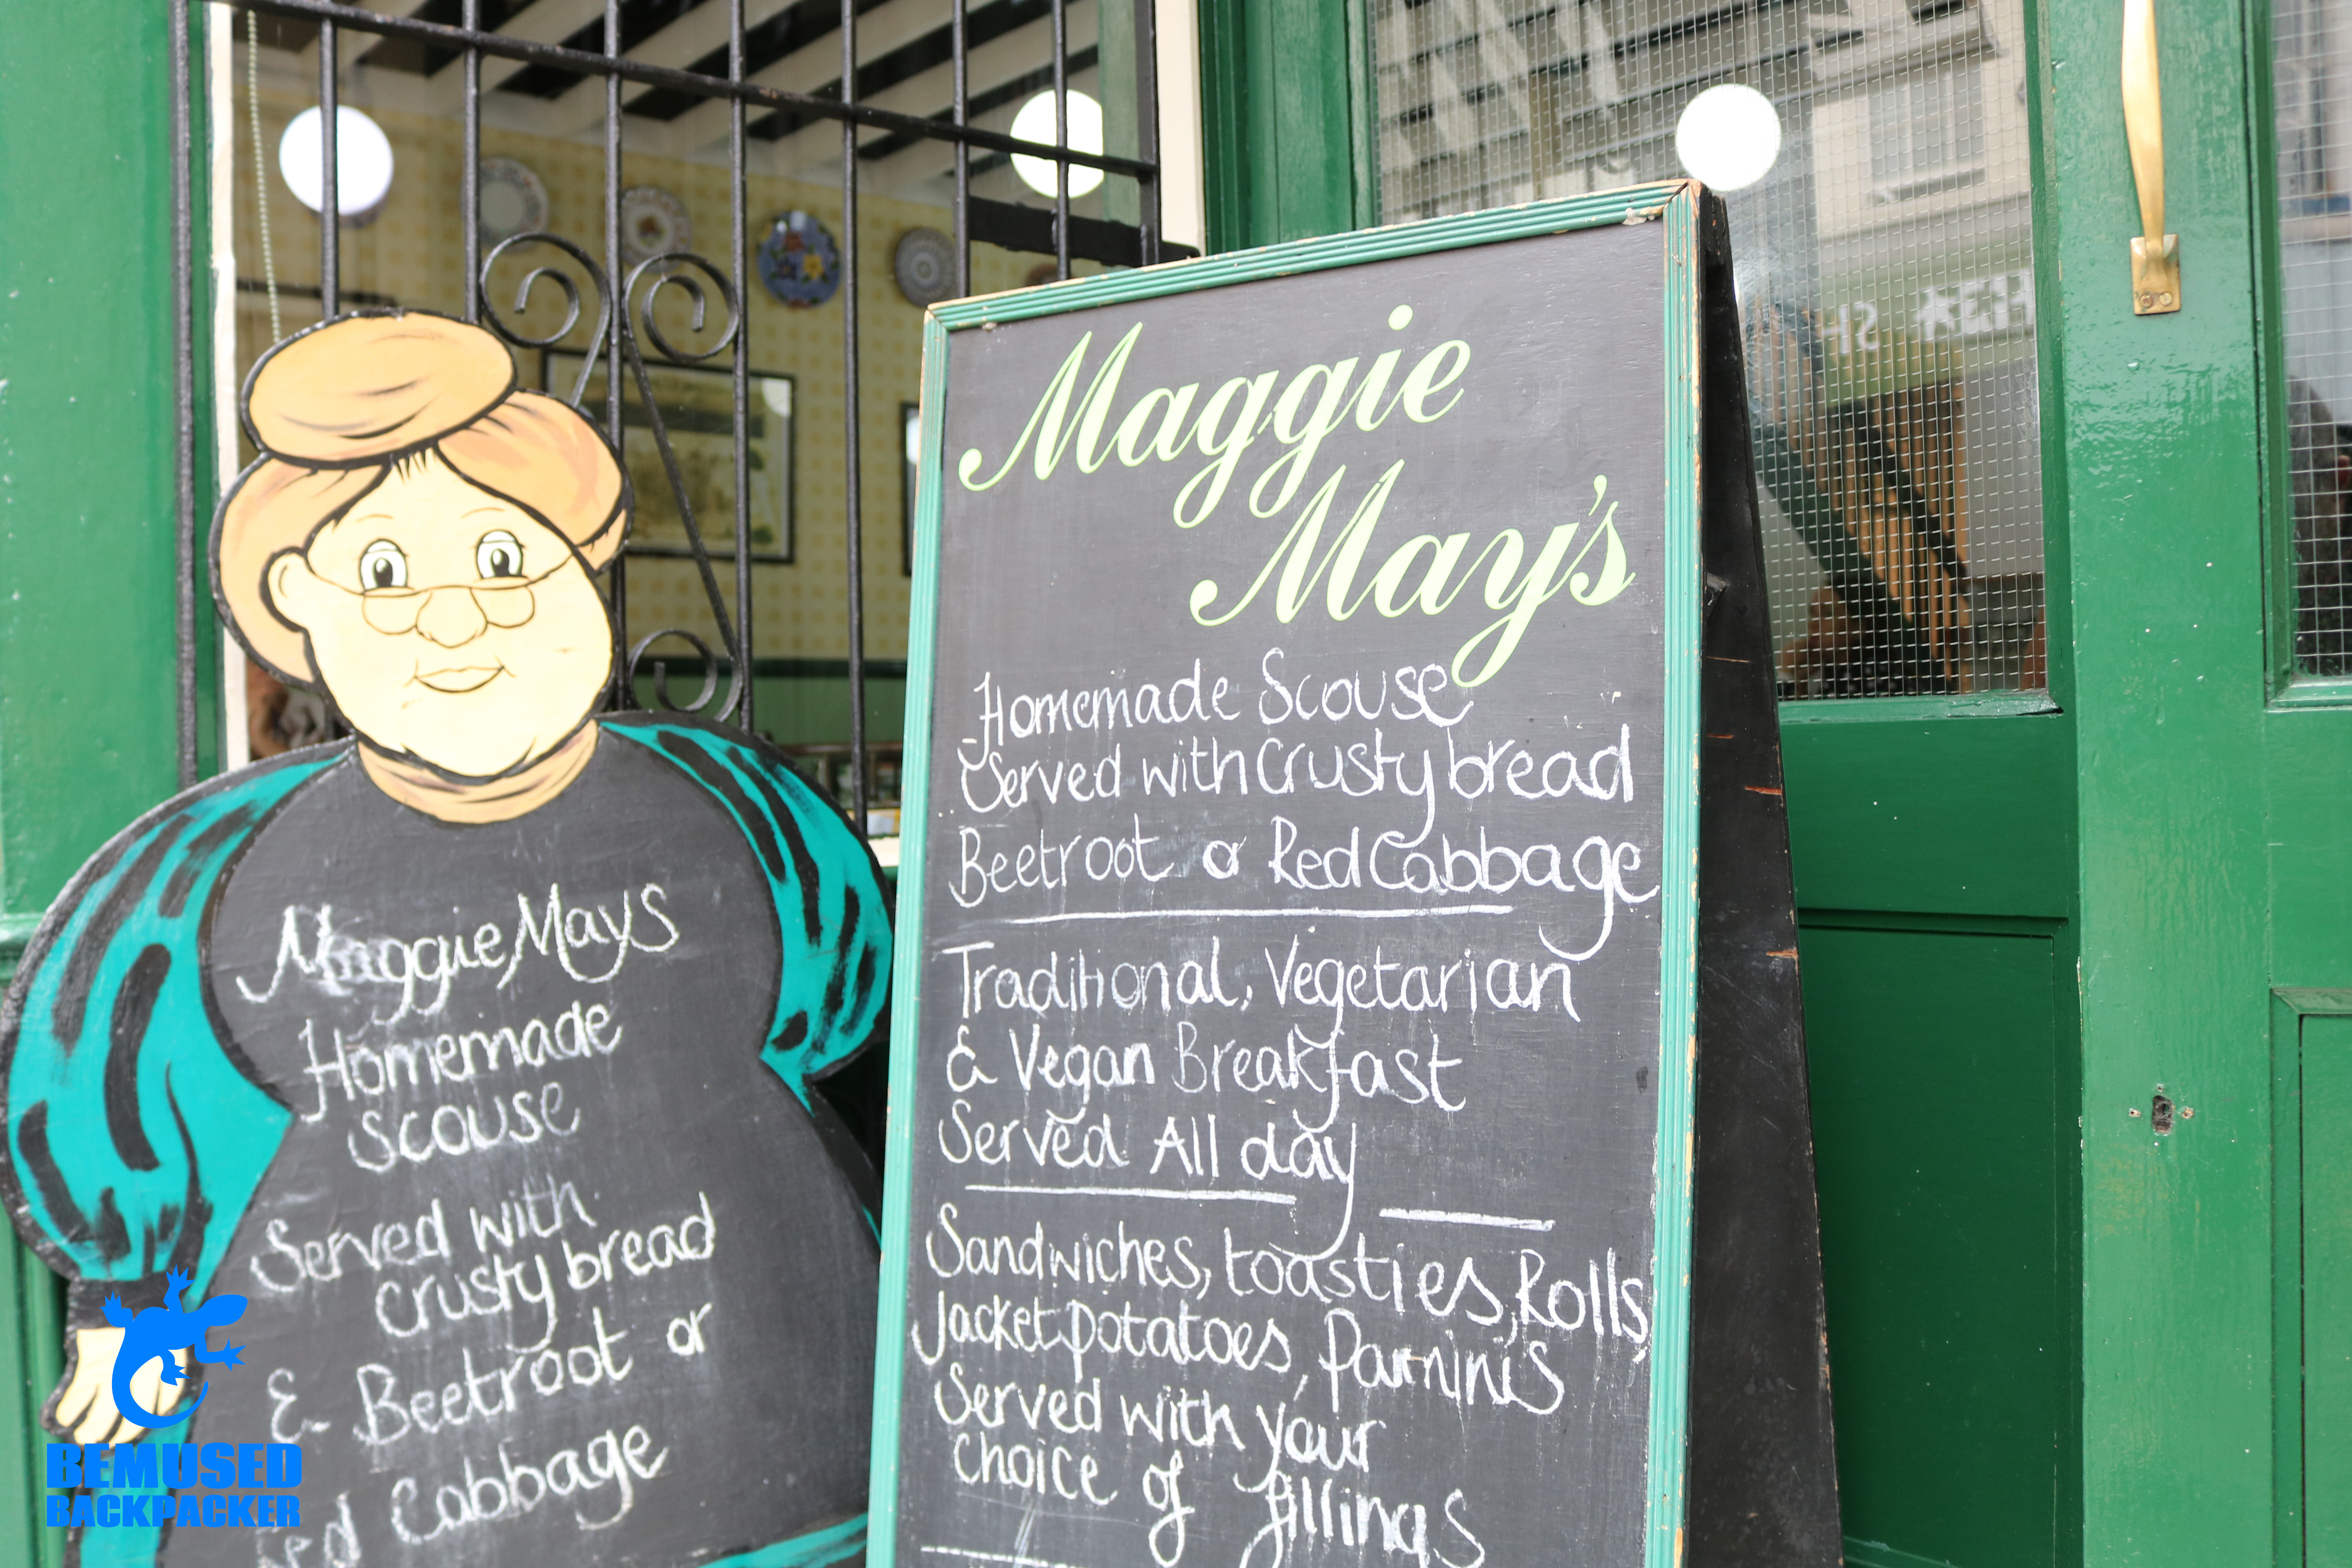 Maggie
May's
Homemade Scouse
Served with crusty bread
Beetroot or Red Cabbage
Traditional, Vegetarian
& Vegan Breakfast
Served All day
Sandwiches, toasties, Rolls,
Jacket potatoes, Parninis
Served with your
choice of fillings
Maggie Mays
Homemade
Scouse
Served with
crusty bread
& Beetroot or
ed Cabbage
BEMUSED
BACKPACKER